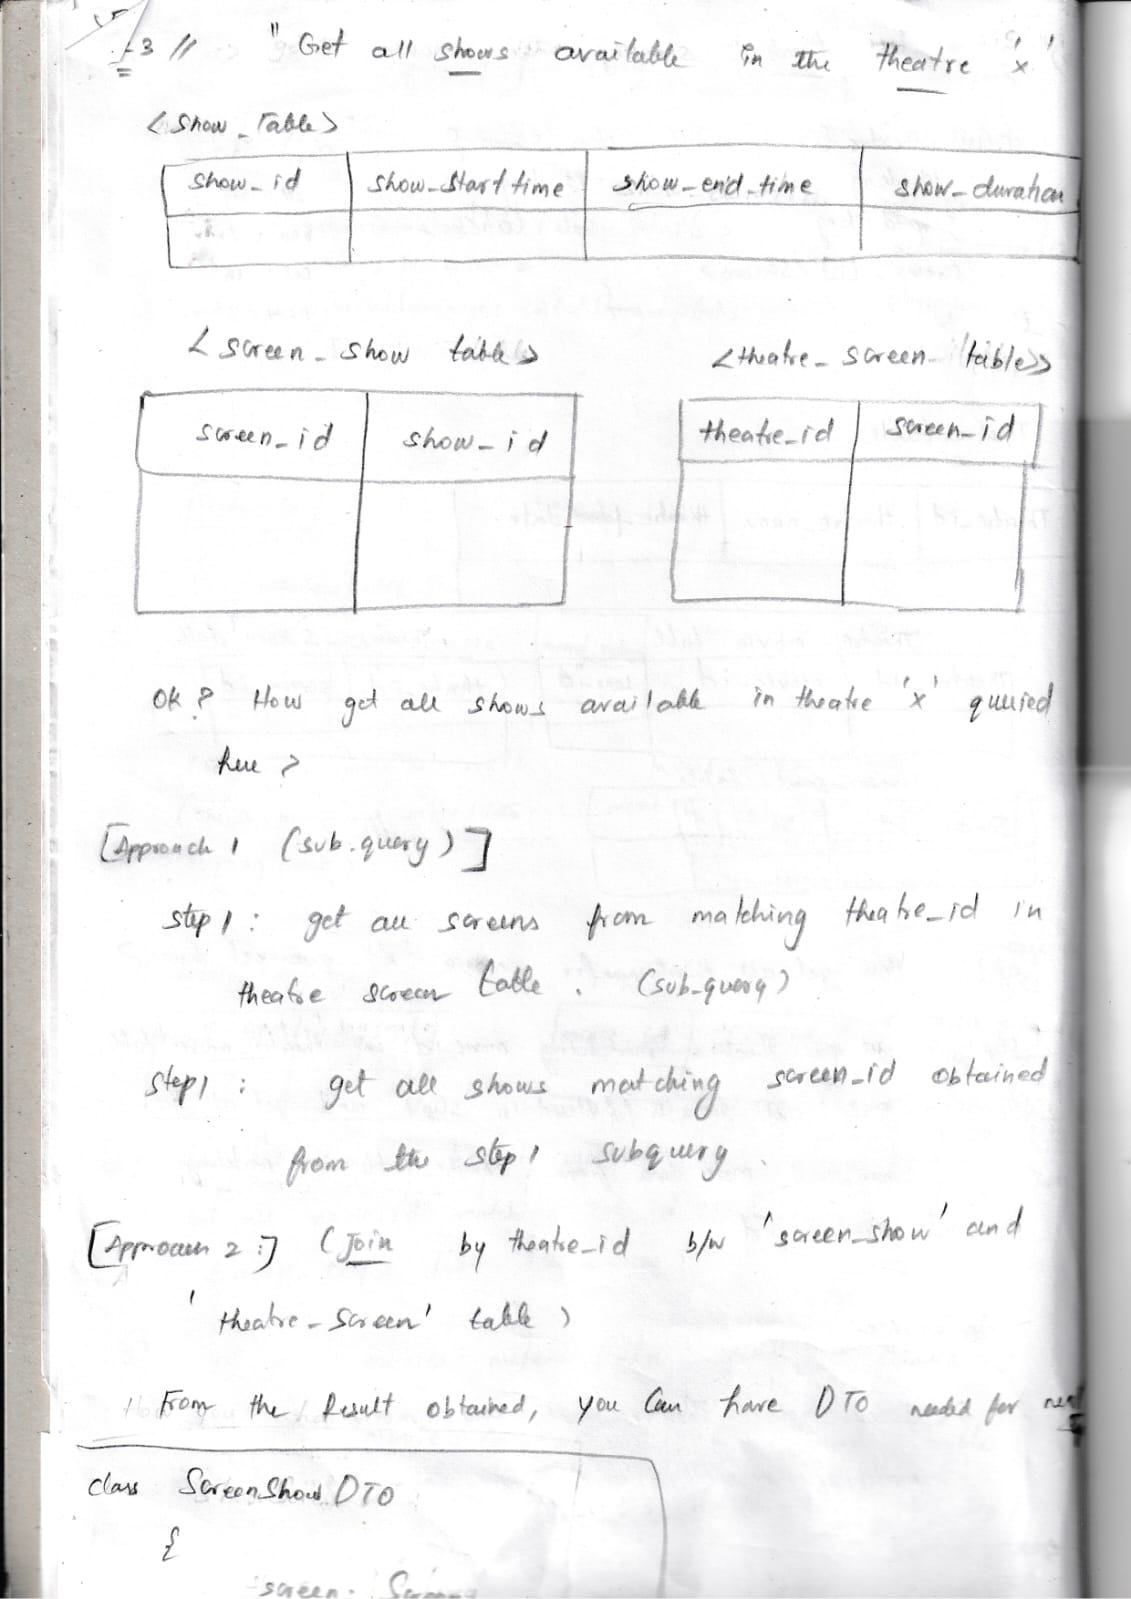 -3 // " Get all shows available in the theatre 'x'
< Show_Table>
show_id show_Start time show_end_time show_duration
< screen_show table> <theatre_screen_table>>
screen_id show_id theatre_id screen_id
OK ? How get all shows available in theatre 'x' queried
here ?
[Approach 1 (sub.query)]
step 1 : get all screens from matching theatre_id in
theatre screen table . (sub-query)
step 1 : get all shows matching screen_id obtained
from the step 1 subquery.
[Approach 2 :] (Join by theatre_id b/w 'screen_show' and
'theatre-screen' table )
From the Result obtained, you can have DTO needed for
class ScreenShow DTO
{
screen.